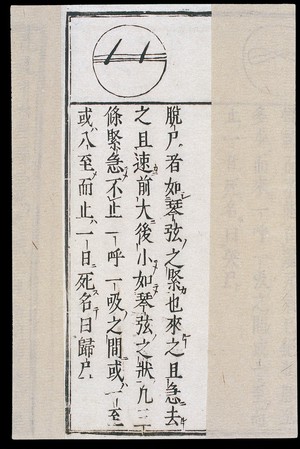 脫尸者如琴弦之緊也來之且急去
之且速前大後小如琴弦之狀凡三
條緊急不止一呼一吸之間或一至
或八至而止一日死名曰歸尸